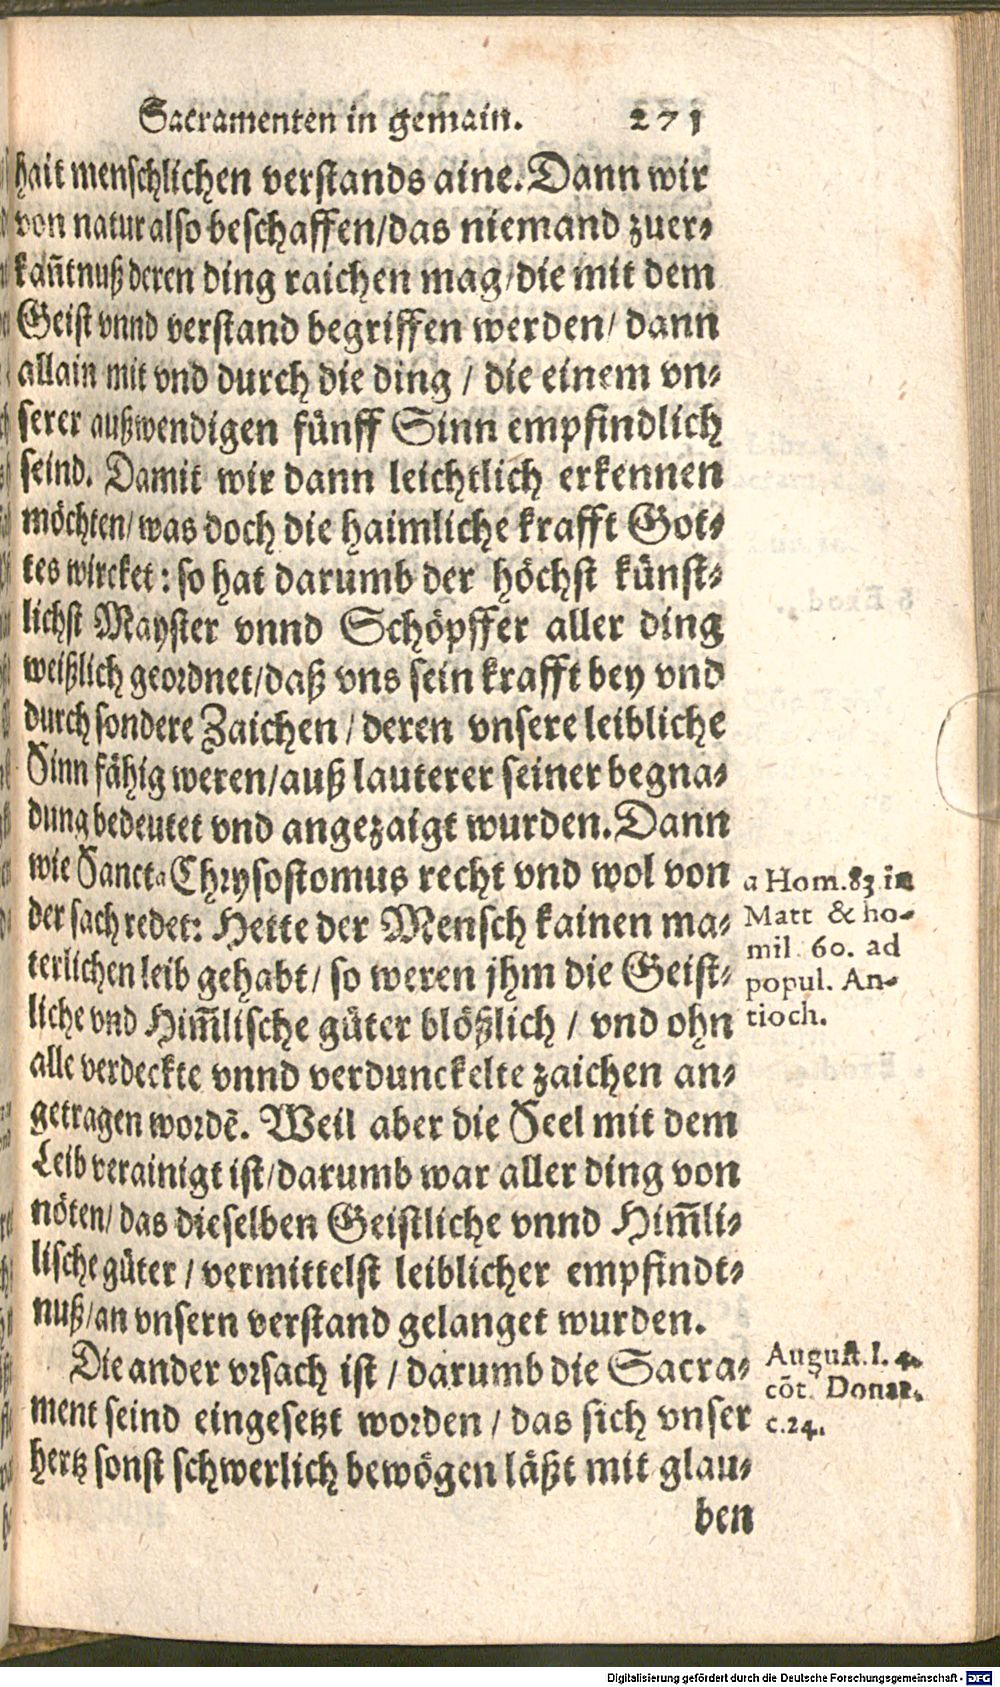 Sacramenten in gemain. 271
hait menschlichen verstands aine. Dann wir
von natur also beschaffen/das niemand zuer⸗
kañtnuß deren ding raichen mag/die mit dem
Geist vnnd verstand begriffen werden/ dann
allain mit vnd durch die ding / die einem vn⸗
serer außwendigen fünff Sinn empfindlich
seind. Damit wir dann leichtlich erkennen
möchten/was doch die haimliche krafft Got⸗
tes wircket: so hat darumb der höchst künst⸗
lichst Mayster vnnd Schöpffer aller ding
weißlich geordnet/daß vns sein krafft bey vnd
durch sondere Zaichen / deren vnsere leibliche
Sinn fähig weren/auß lauterer seiner begna⸗
dung bedeutet vnd angezaigt wurden. Dann
wie Sanct a Chrysostomus recht vnd wol von
der sach redet: Hette der Mensch kainen ma⸗
terlichen leib gehabt/ so weren jhm die Geist⸗
liche vnd Him̃lische güter blößlich / vnd ohn
alle verdeckte vnnd verdunckelte zaichen an⸗
getragen wordẽ. Weil aber die Seel mit dem
Leib verainigt ist/darumb war aller ding von
nöten/das dieselben Geistliche vnnd Him̃li⸗
lische güter / vermittelst leiblicher empfindt⸗
nuß/an vnsern verstand gelanget wurden.
a Hom.83 in
Matt & ho-
mil. 60. ad
popul. An-
tioch.
Die ander vrsach ist / darumb die Sacra⸗
ment seind eingesetzt worden / das sich vnser
hertz sonst schwerlich bewögen läßt mit glau⸗
August. l. 4.
cōt. Donat.
c.24.
ben
Digitalisierung gefördert durch die Deutsche Forschungsgemeinschaft - DFG